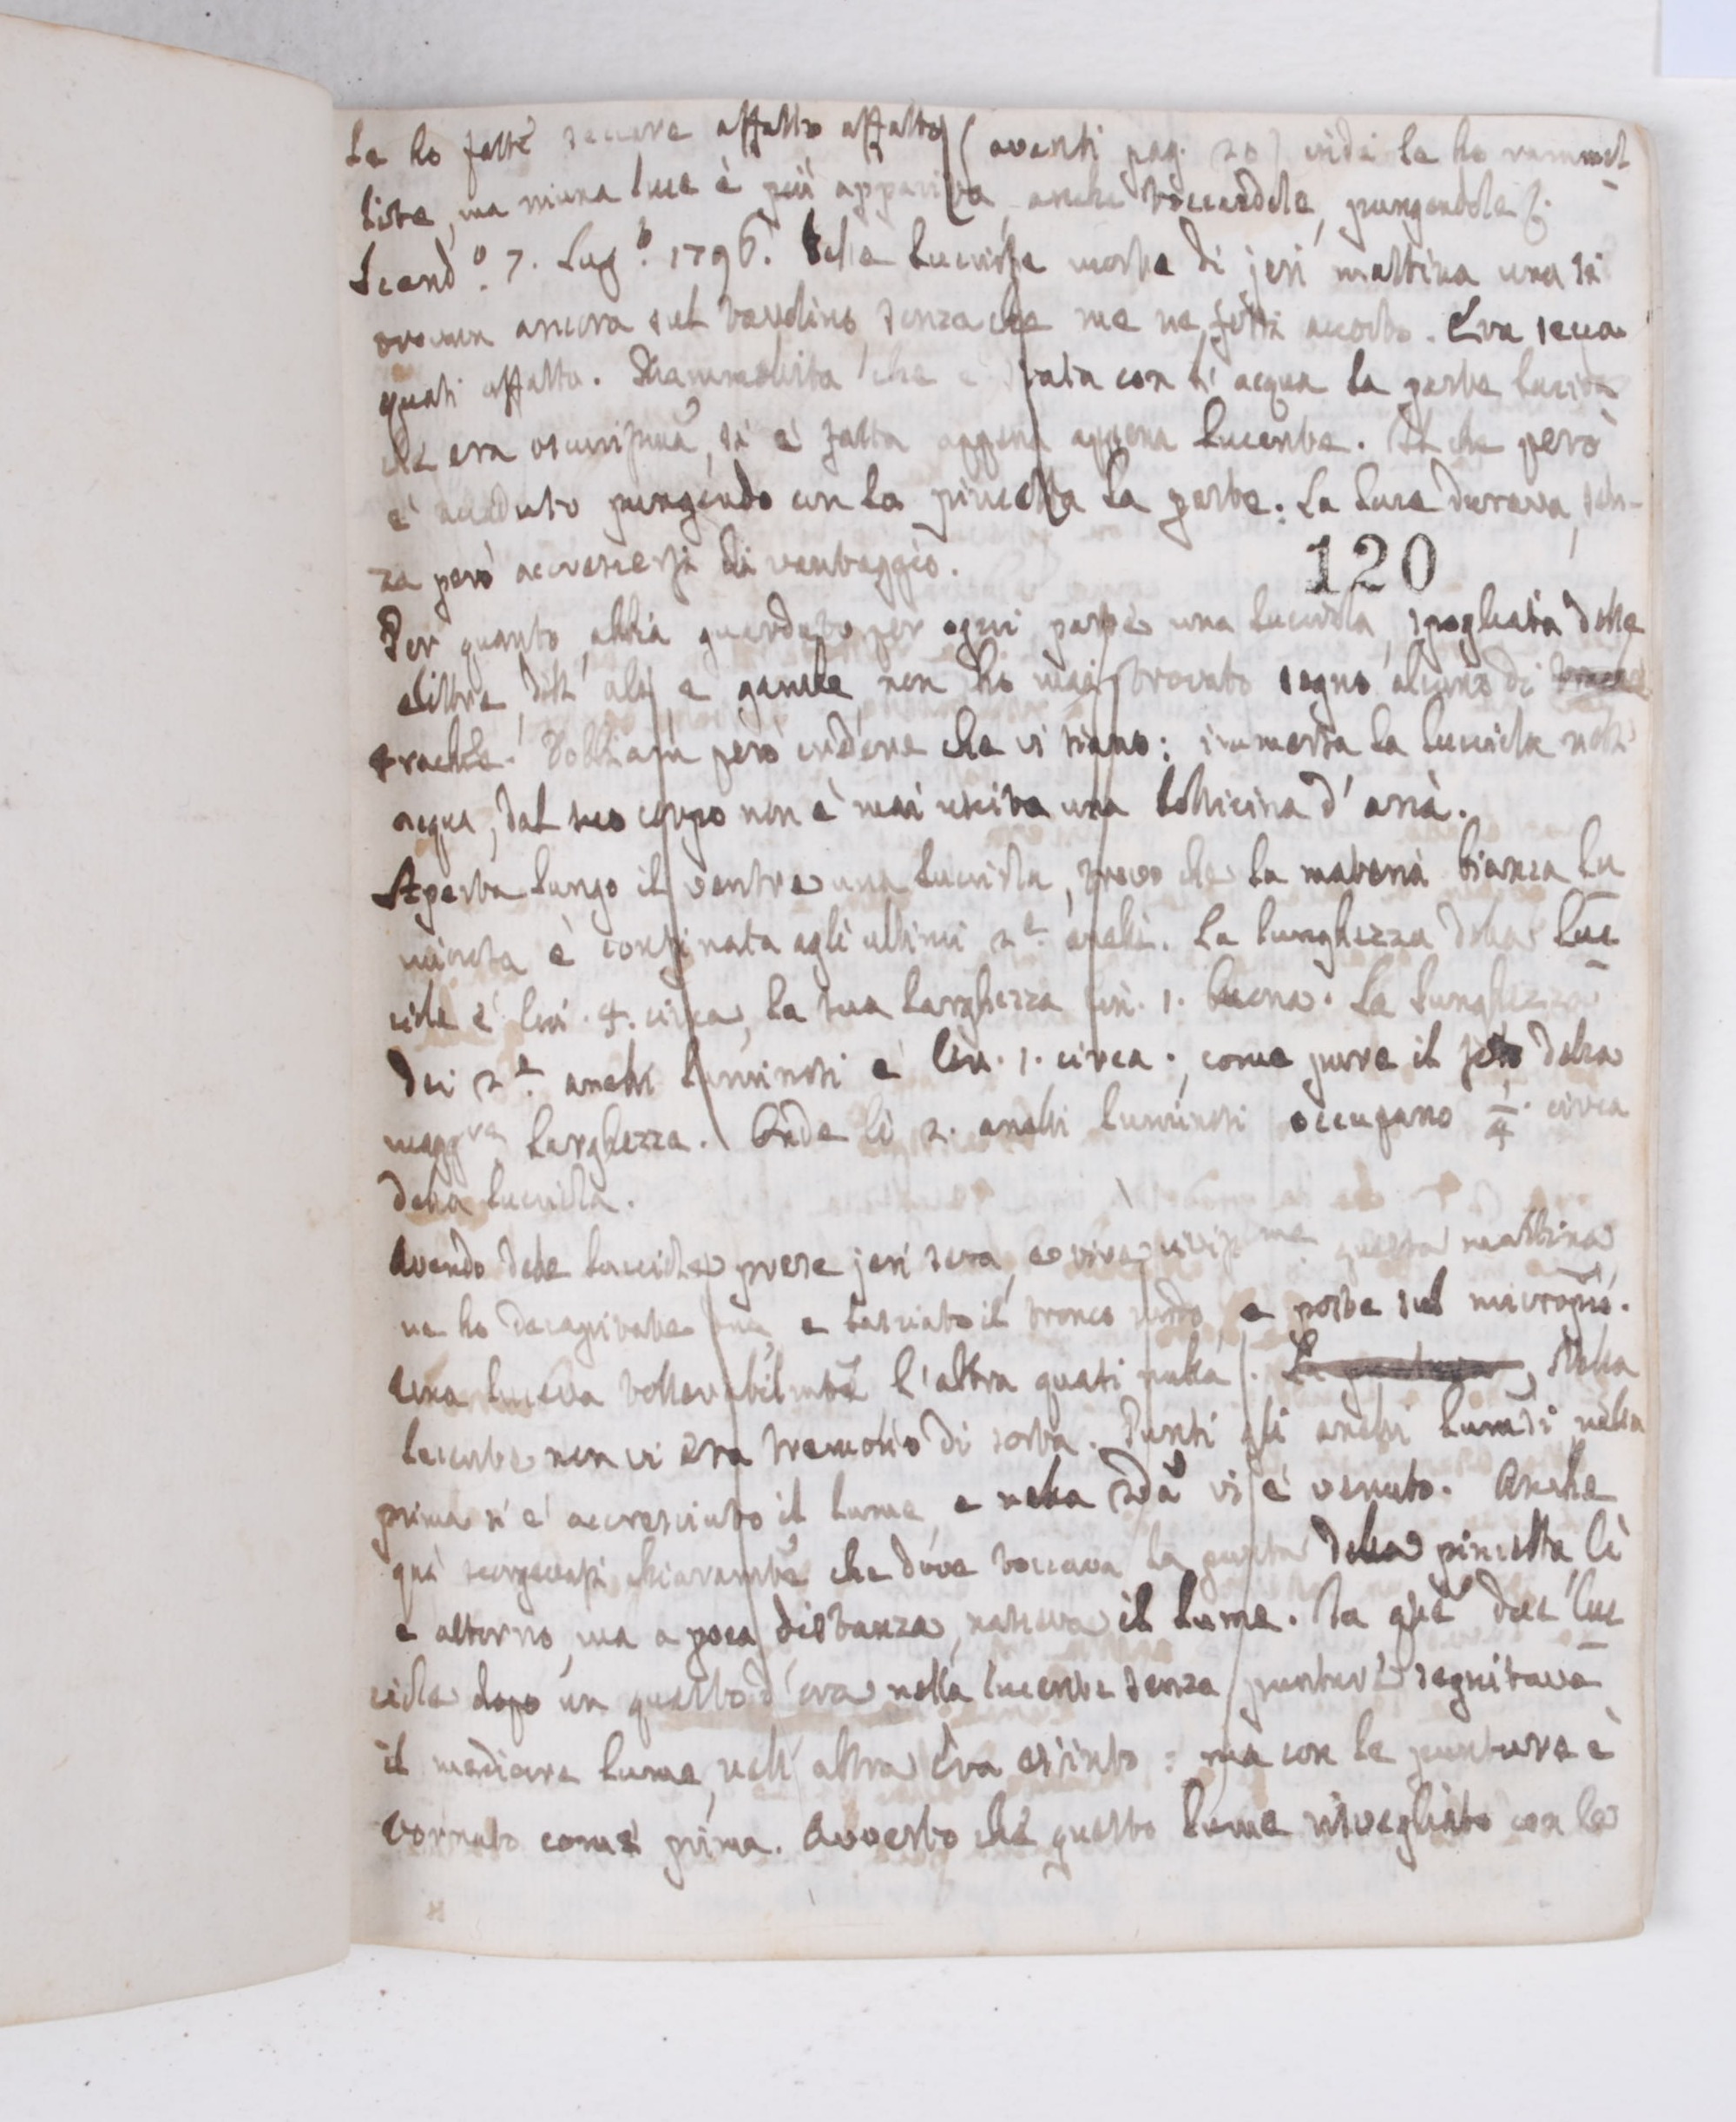 Le ho fatte seccare affatto affatto (avanti pag. 20) indi le ho rammol
lite, ma niuna luce è più apparita, anche toccandole, pungendole &.
Scand.º 7. Lug.º 1796. Delle lucciole morte di jeri mattina una si
trovava ancora sul tavolino, senza che me ne fossi accorto. Era secca
quasi affatto. Rammollita che è stata con l'acqua la parte lucida
che era oscurissima, si è fatta appena appena lucente. Il che però
è accaduto pungendo con la pincetta la parte. La luce durava, sen-
za però accrescersi di vantaggio.
120
Per quanto abbia guardato per ogni parte una lucciola, spogliata delle
elitre, dell'ali, e gambe non ho mai trovato segno alcuno di
trachee. Bisogna però credere che vi siano: immersa la lucciola nell'
acqua, dal suo corpo non è mai uscita una bollicina d'aria.
Aperta lungo il ventre una lucciola, trovo che la materia bianca lu
minosa è confinata agli ultimi 2.e anelli. La lunghezza della luc
ciola è lin. 4. circa, la sua larghezza lin. 1. buona. La lunghezza
dei 2.e anelli luminosi è lin. 1. circa, come pure il
magg.re larghezza. Onde li 2. anelli luminosi occupano 1/4. circa
della lucciola.
Avendo delle lucciole prese jeri sera, e vive viviss.me questa mattina
ne ho decapitate due, e lasciato il tronco nudo, e poste sul microsc.
una luceva tollerabilmte l'altra quasi nulla. Nella
lucente non vi era tremolio di sorta. Punti gli anelli lumsi nella
prima si è accresciuto il lume, e nella 2da vi è venuto. Anche
quì scorgevasi chiaramte che dove toccava la punta della pincetta, lì
e attorno, ma a poca distanza, nasceva il lume. In qste due luc
ciole dopo un quarto d'ora nella lucente senza punture seguitava
il mediocre lume, nell'altra era estinto: ma con le punture è
tornato come prima. Avverto che questo lume risvegliato con le